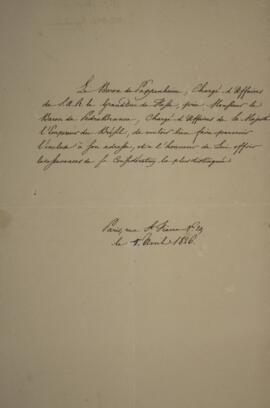 Le Baron de Pappenheim, Chargé d'Affaires
de S.A.R. le Grand Duc de Hesse, prie Monsieur le
Baron de Pedra Branca, Chargé d'Affaires de Sa Majesté
l'Empereur du Brésil, de vouloir bien faire parvenir
l'incluse à son adresse, et a l'honneur de Lui offrir
les assurances de sa Considération la plus distinguée
Paris, rue
le Avril 1826.